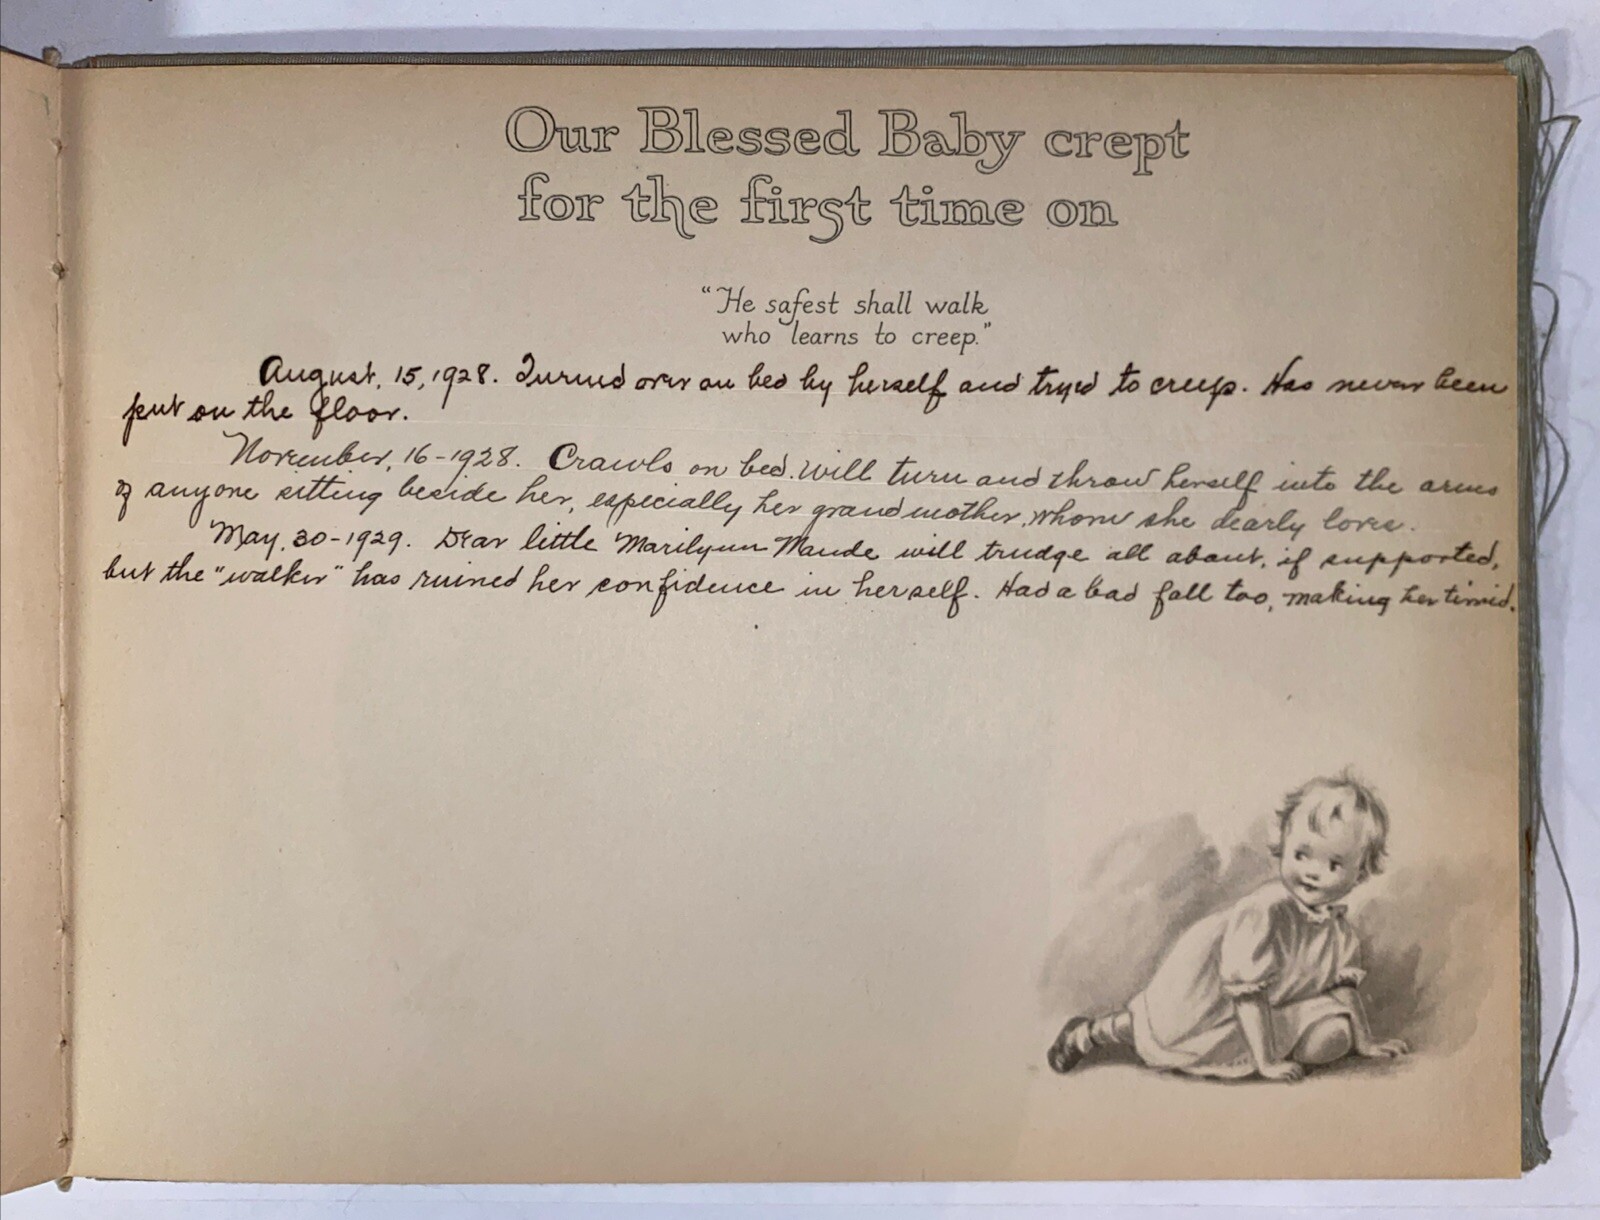 Our Blessed Baby crept
for the first time on
"He safest shall walk
who learns to creep."
August, 15, 1928. Turned over on bed by herself and tryed to creep. Has never been
put on the floor.
November, 16-1928. Crawls on bed. Will turn and throw herself into the arms
of anyone sitting beside her, especially her grandmother, whom she dearly loves.
May, 30-1929. Dear little Marilynn Maude will trudge all about, if supported,
but the "walker" has ruined her confidence in herself. Had a bad fall too, making her timid.